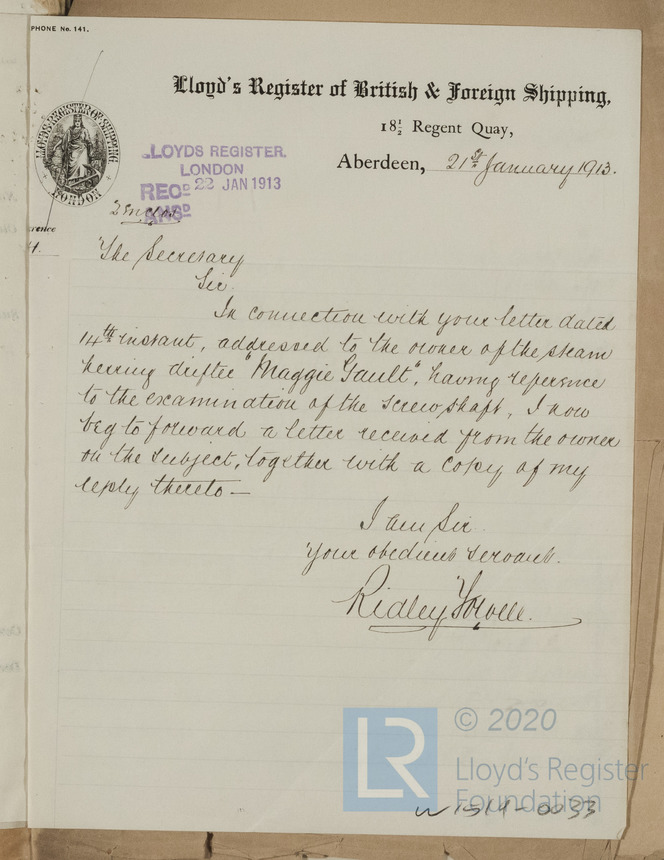 PHONE No. 141.
Lloyd's Register of British & Foreign Shipping,
18½ Regent Quay,
Aberdeen, 21st January 1913.
LLOYD'S REGISTER OF SHIPPING
LONDON
LLOYDS REGISTER.
LONDON
RECD 22 JAN 1913
ANSD
2 Enclos
The Secretary
Sir.
In connection with your letter dated
14th instant, addressed to the owner of the steam
herring drifter "Maggie Gault", having reference
to the examination of the screw shaft, I now
beg to forward a letter received from the owner
on the subject, together with a copy of my
reply thereto —
I am Sir.
Your obedient servant.
Ridley
© 2020
LR
Lloyd's Register
Foundation
W1514-0033